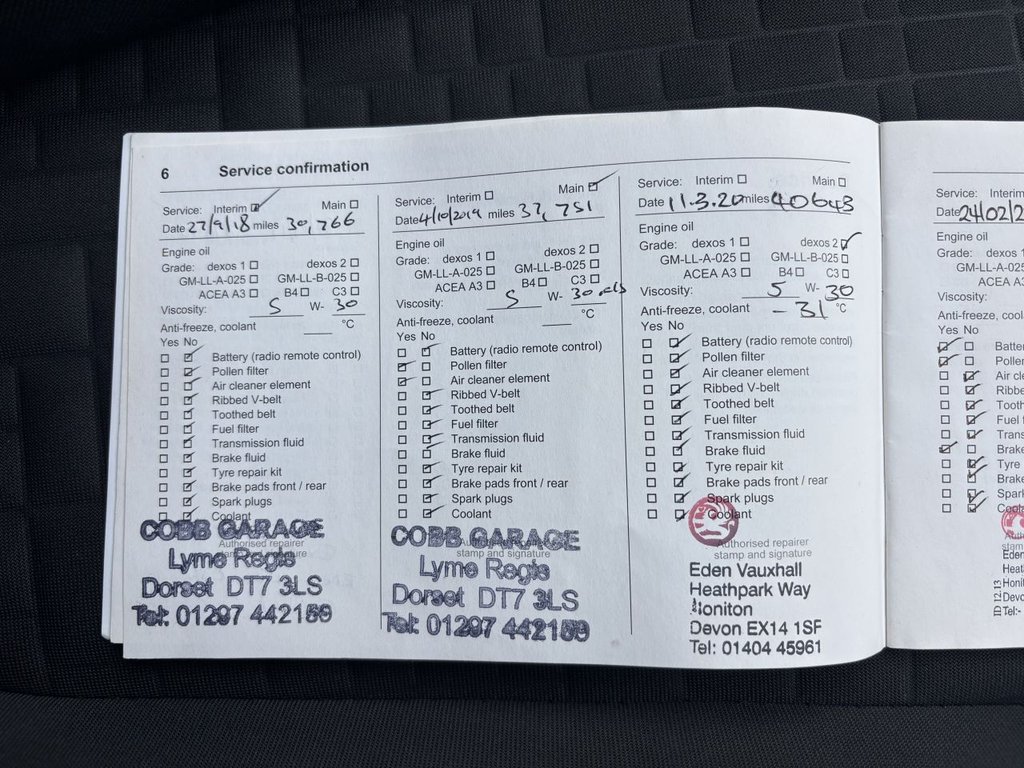 6 Service confirmation
Service: Interim ☑ Main ☐
Date 27/9/18 miles 30,766
Engine oil
Grade: dexos 1 ☐ dexos 2 ☐
GM-LL-A-025 ☐ GM-LL-B-025 ☐
ACEA A3 ☐ B4 ☐ C3 ☐
Viscosity: 5 W- 30
Anti-freeze, coolant °C
Yes No
☐ ☑ Battery (radio remote control)
☐ ☑ Pollen filter
☐ ☑ Air cleaner element
☐ ☑ Ribbed V-belt
☐ ☑ Toothed belt
☐ ☑ Fuel filter
☐ ☑ Transmission fluid
☐ ☑ Brake fluid
☐ ☑ Tyre repair kit
☐ ☑ Brake pads front / rear
☐ ☑ Spark plugs
☐ ☑ Coolant
Authorised repairer
COBB GARAGE
Lyme Regis
Dorset DT7 3LS
Tel: 01297 442159
Service: Interim ☐ Main ☑
Date 4/10/2019 miles 37,751
Engine oil
Grade: dexos 1 ☐ dexos 2 ☐
GM-LL-A-025 ☐ GM-LL-B-025 ☐
ACEA A3 ☐ B4 ☐ C3 ☐
Viscosity: 5 W- 30
Anti-freeze, coolant °C
Yes No
☐ ☑ Battery (radio remote control)
☑ ☐ Pollen filter
☑ ☐ Air cleaner element
☐ ☑ Ribbed V-belt
☐ ☑ Toothed belt
☐ ☑ Fuel filter
☐ ☑ Transmission fluid
☐ ☑ Brake fluid
☐ ☑ Tyre repair kit
☐ ☑ Brake pads front / rear
☐ ☑ Spark plugs
☐ ☑ Coolant
COBB GARAGE
stamp and signature
Lyme Regis
Dorset DT7 3LS
Tel: 01297 442159
Service: Interim ☐ Main ☐
Date 11.3.20 miles 40643
Engine oil
Grade: dexos 1 ☐ dexos 2 ☑
GM-LL-A-025 ☐ GM-LL-B-025 ☐
ACEA A3 ☐ B4 ☐ C3 ☐
Viscosity: 5 W- 30
Anti-freeze, coolant -31 °C
Yes No
☐ ☑ Battery (radio remote control)
☐ ☑ Pollen filter
☐ ☑ Air cleaner element
☐ ☑ Ribbed V-belt
☐ ☑ Toothed belt
☐ ☑ Fuel filter
☐ ☑ Transmission fluid
☐ ☑ Brake fluid
☐ ☑ Tyre repair kit
☐ ☑ Brake pads front / rear
☐ ☑ Spark plugs
☐ ☑ Coolant
Authorised repairer
stamp and signature
Eden Vauxhall
Heathpark Way
Honiton
Devon EX14 1SF
Tel: 01404 45961
Service: Interim
Date 24/02/2
Engine oil
Grade: dexos
GM-LL-A-025
ACEA A3
Viscosity:
Anti-freeze, cool
Yes No
☑ ☐ Batte
☑ ☐ Poller
☐ ☑ Air cle
☐ ☑ Ribbe
☐ ☑ Tooth
☐ ☑ Fuel f
☐ ☑ Trans
☑ ☐ Brake
☐ ☑ Tyre
☐ ☑ Brake
☐ ☑ Spark
☐ ☑ Coola
Eden
Heat
Honi
Devo
Tel:-